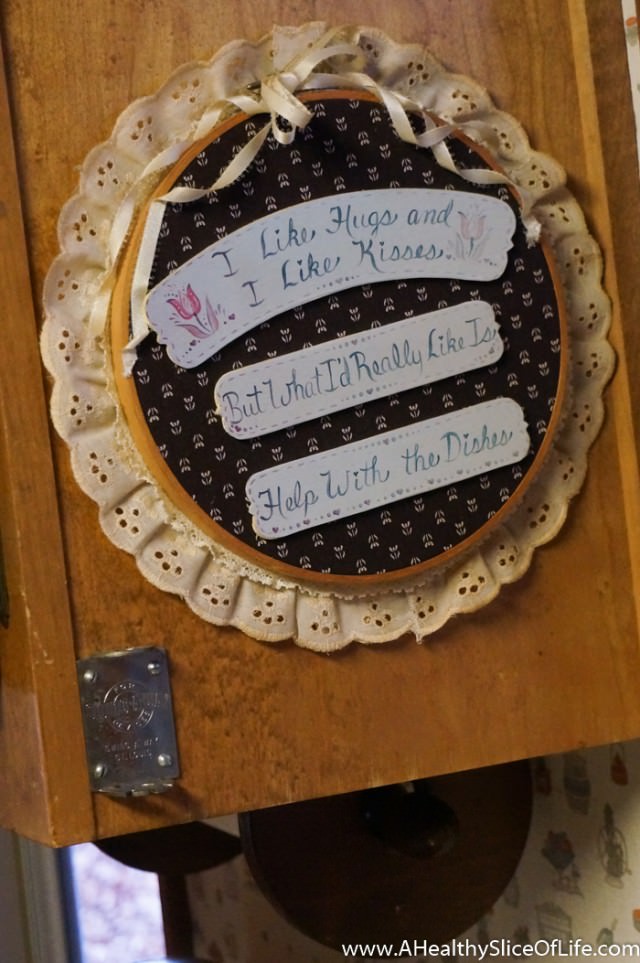 I Like Hugs and
I Like Kisses
But What I'd Really Like Is
Help With the Dishes
www.AHealthySliceOfLife.com